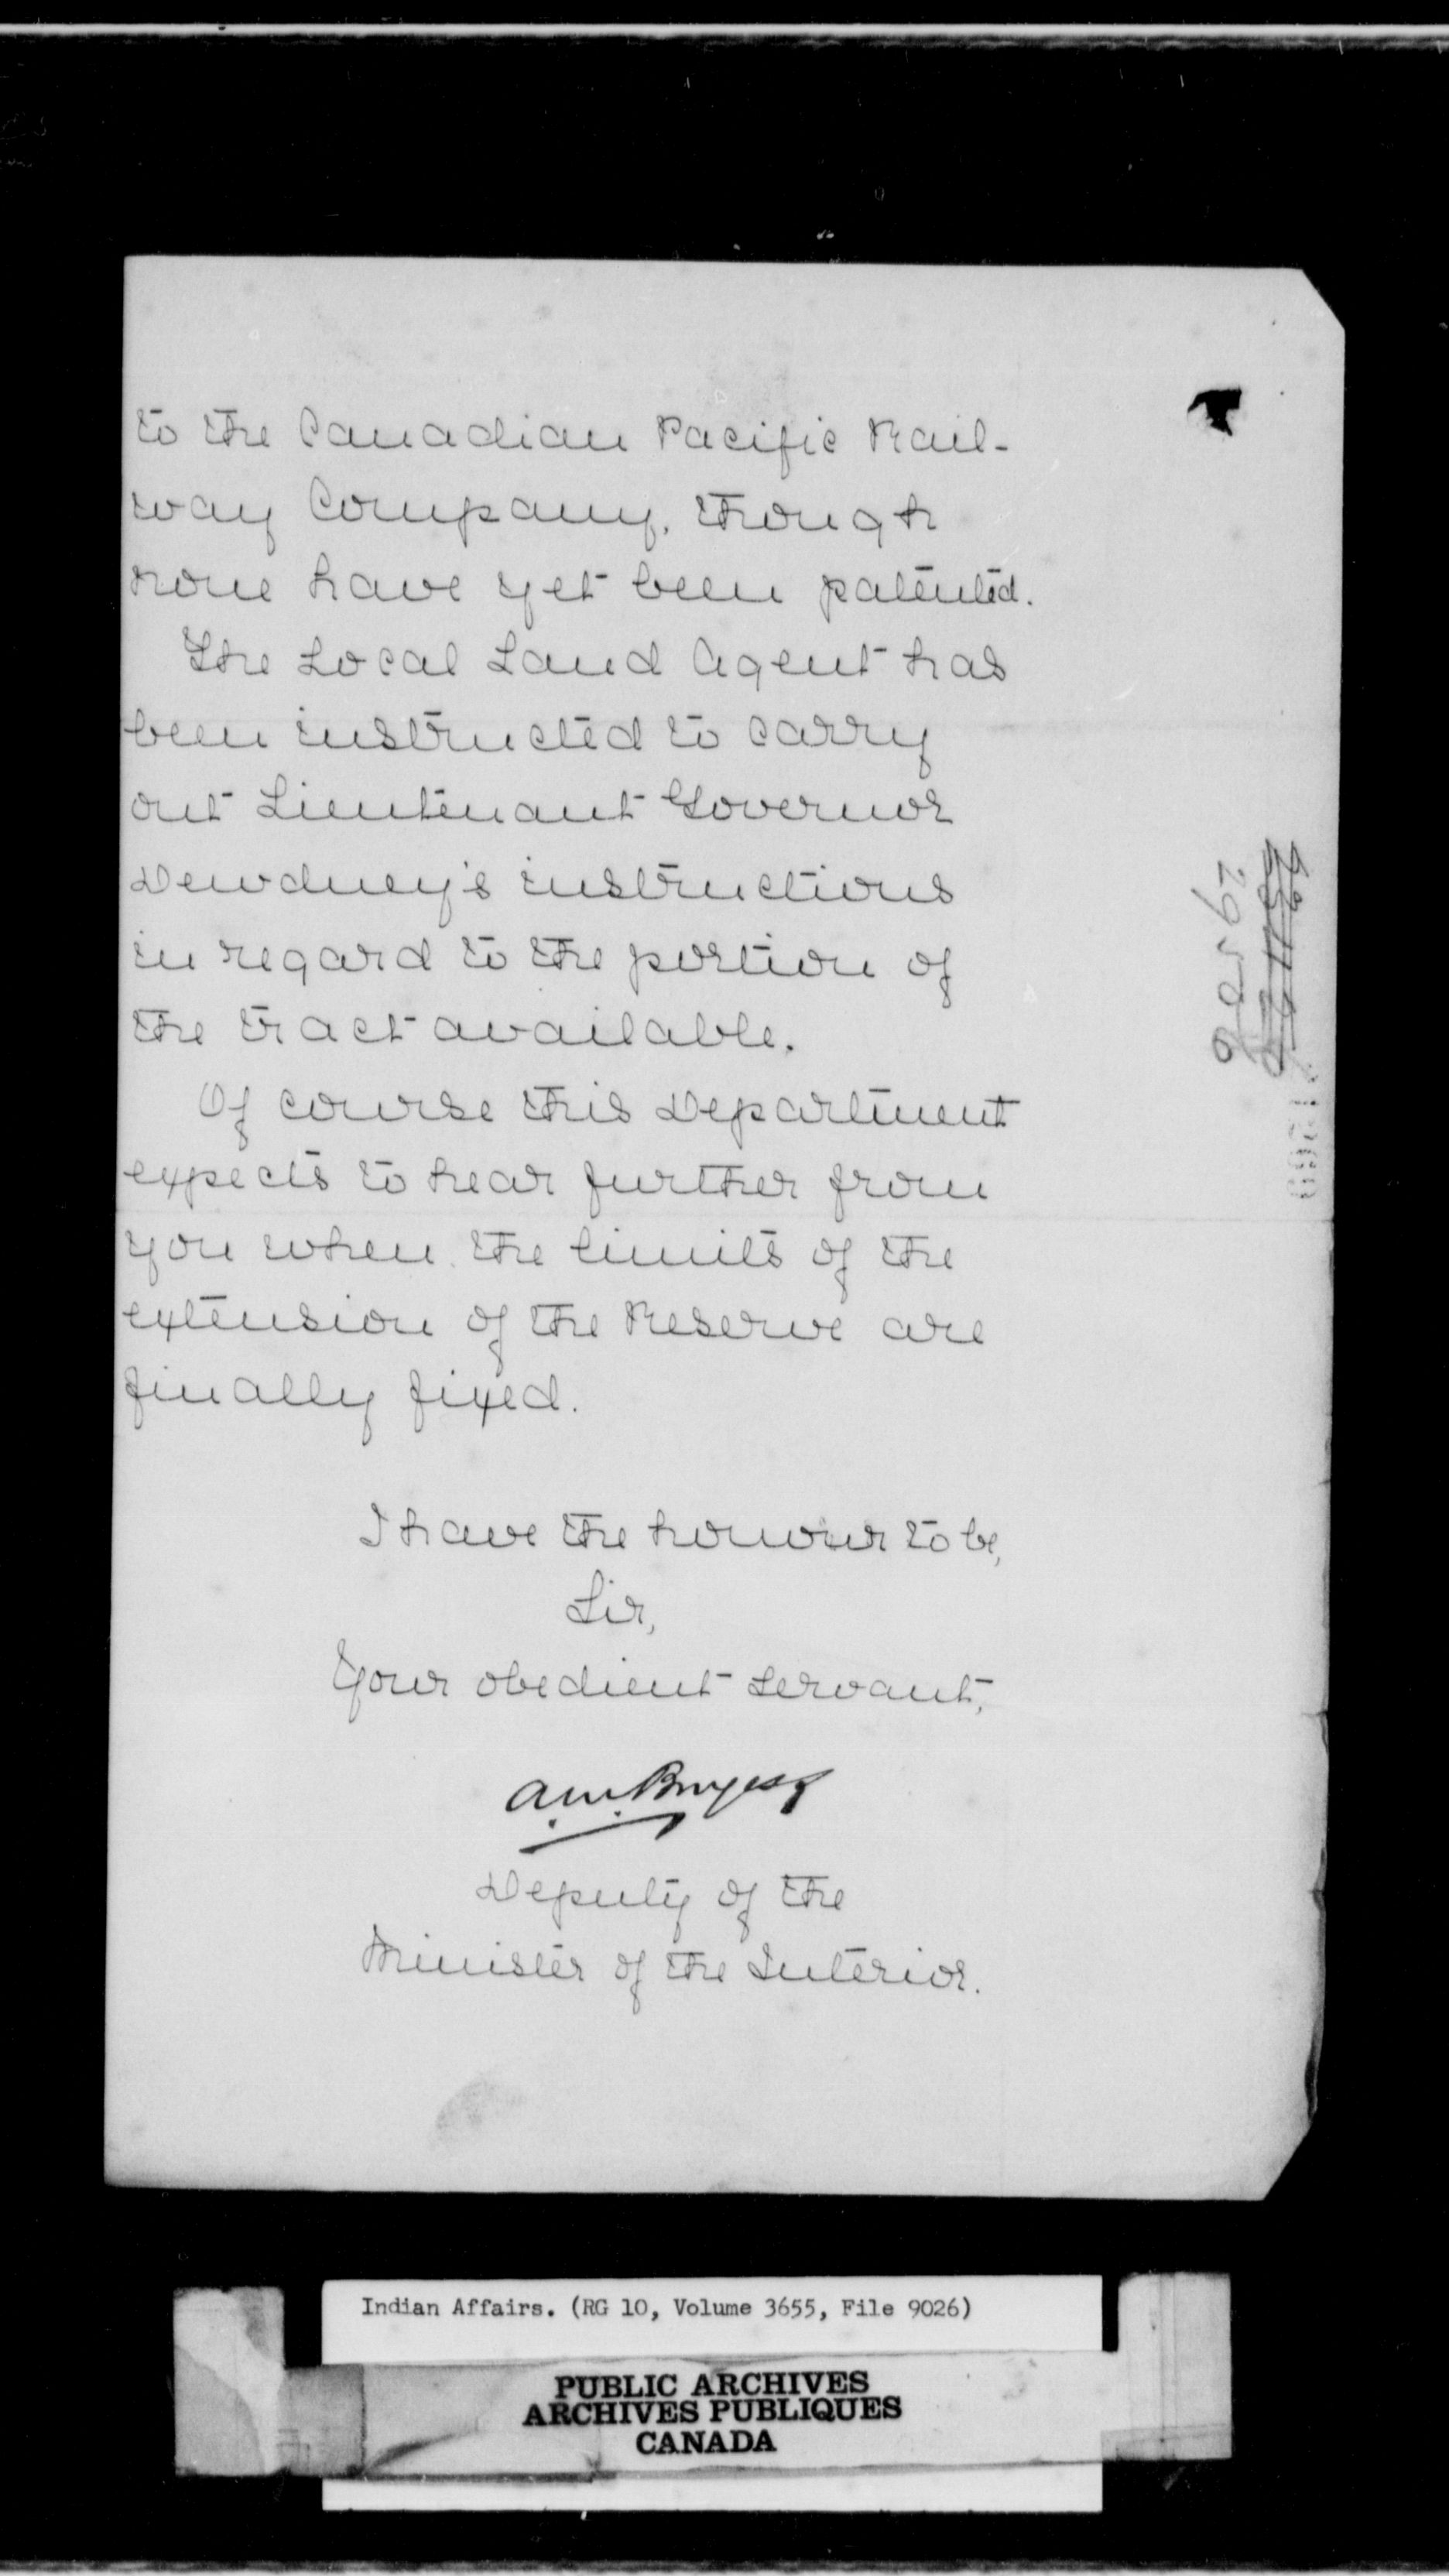 to the Canadian Pacific Rail-
way Company, though
none have yet been patented.
The Local Land Agent has
been instructed to carry
out Lieutenant Governor
Dewdney's instructions
in regard to the portion of
the tract available.
Of course this Department
expects to hear further from
you when the limits of the
extension of the Reserve are
finally fixed.
I have the honour to be,
Sir,
Your obedient servant,
A. M. Burgess
Deputy of the
Minister of the Interior.
Indian Affairs. (RG 10, Volume 3655, File 9026)
PUBLIC ARCHIVES
ARCHIVES PUBLIQUES
CANADA